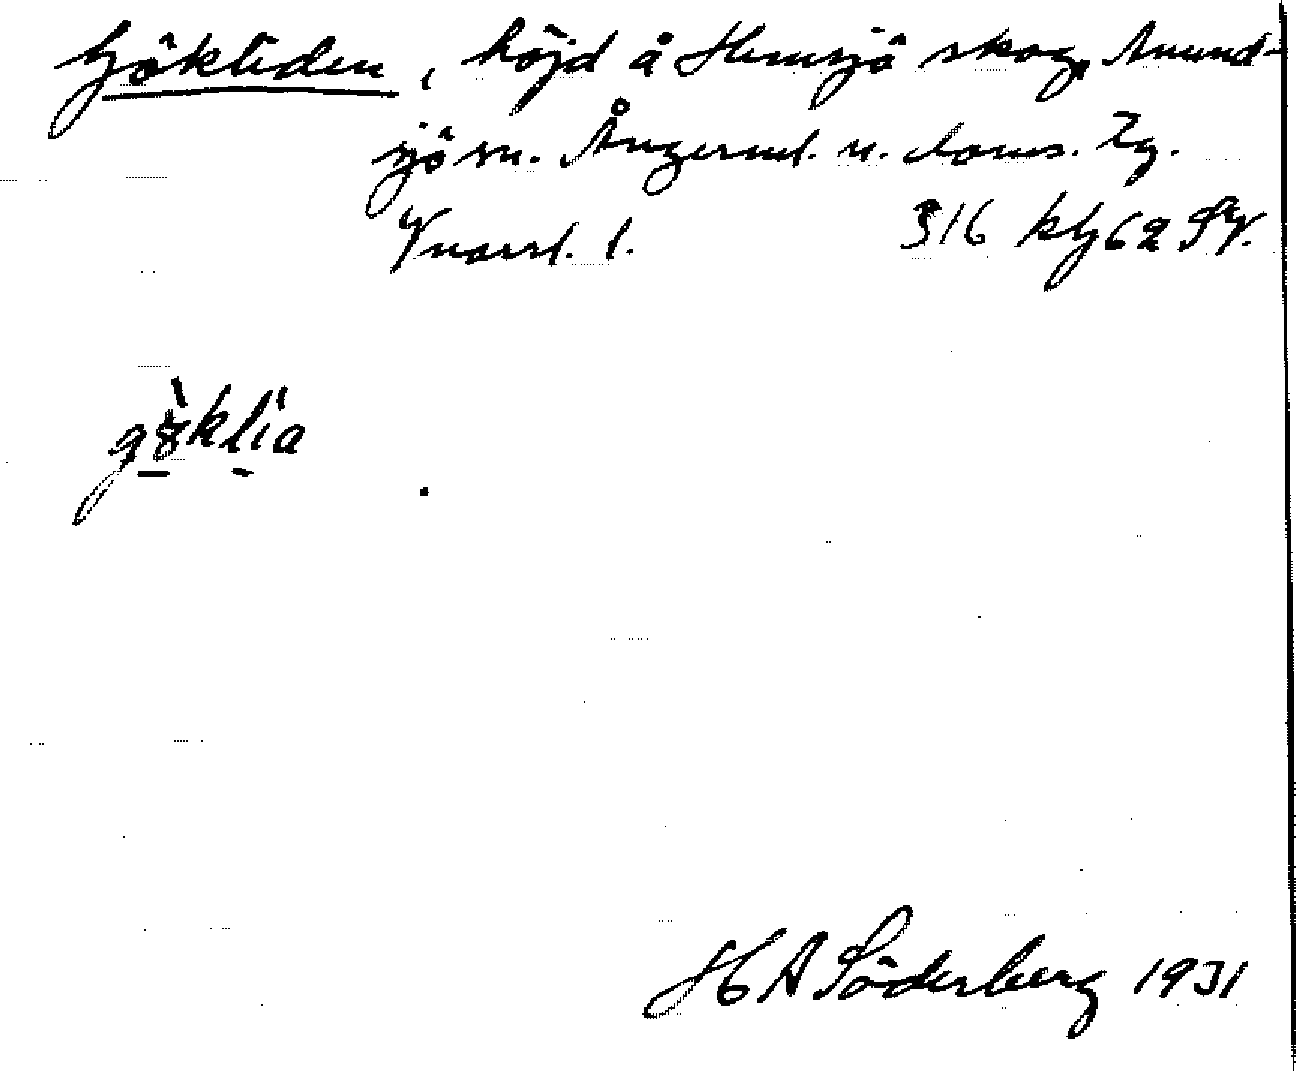 Gökliden, höjd å Hemsjö skog, Anund-
sjö sn. Ångerml. n. doms. Tg.
Vnorrl. l. 316 kbl 62 SV.
gö̀klía
H A Söderberg 1931